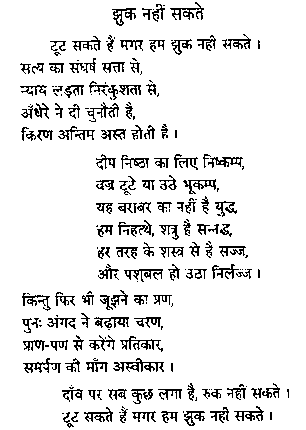 झुक नहीं सकते
टूट सकते हैं मगर हम झुक नहीं सकते ।
सत्य का संघर्ष सत्ता से,
न्याय लड़ता निरंकुशता से,
अँधेरे ने दी चुनौती है,
किरण अन्तिम अस्त होती है ।
दीप निष्ठा का लिए निष्कम्प,
वज्र टूटे या उठे भूकम्प,
यह बराबर का नहीं है युद्ध,
हम निहत्थे, शत्रु है सन्नद्ध,
हर तरह के शस्त्र से है सज्ज,
और पशुबल हो उठा निर्लज्ज ।
किन्तु फिर भी जूझने का प्रण,
पुनः अंगद ने बढ़ाया चरण,
प्राण-पण से करेंगे प्रतिकार,
समर्पण की माँग अस्वीकार ।
दाँव पर सब कुछ लगा है, रुक नहीं सकते ।
टूट सकते हैं मगर हम झुक नहीं सकते ।